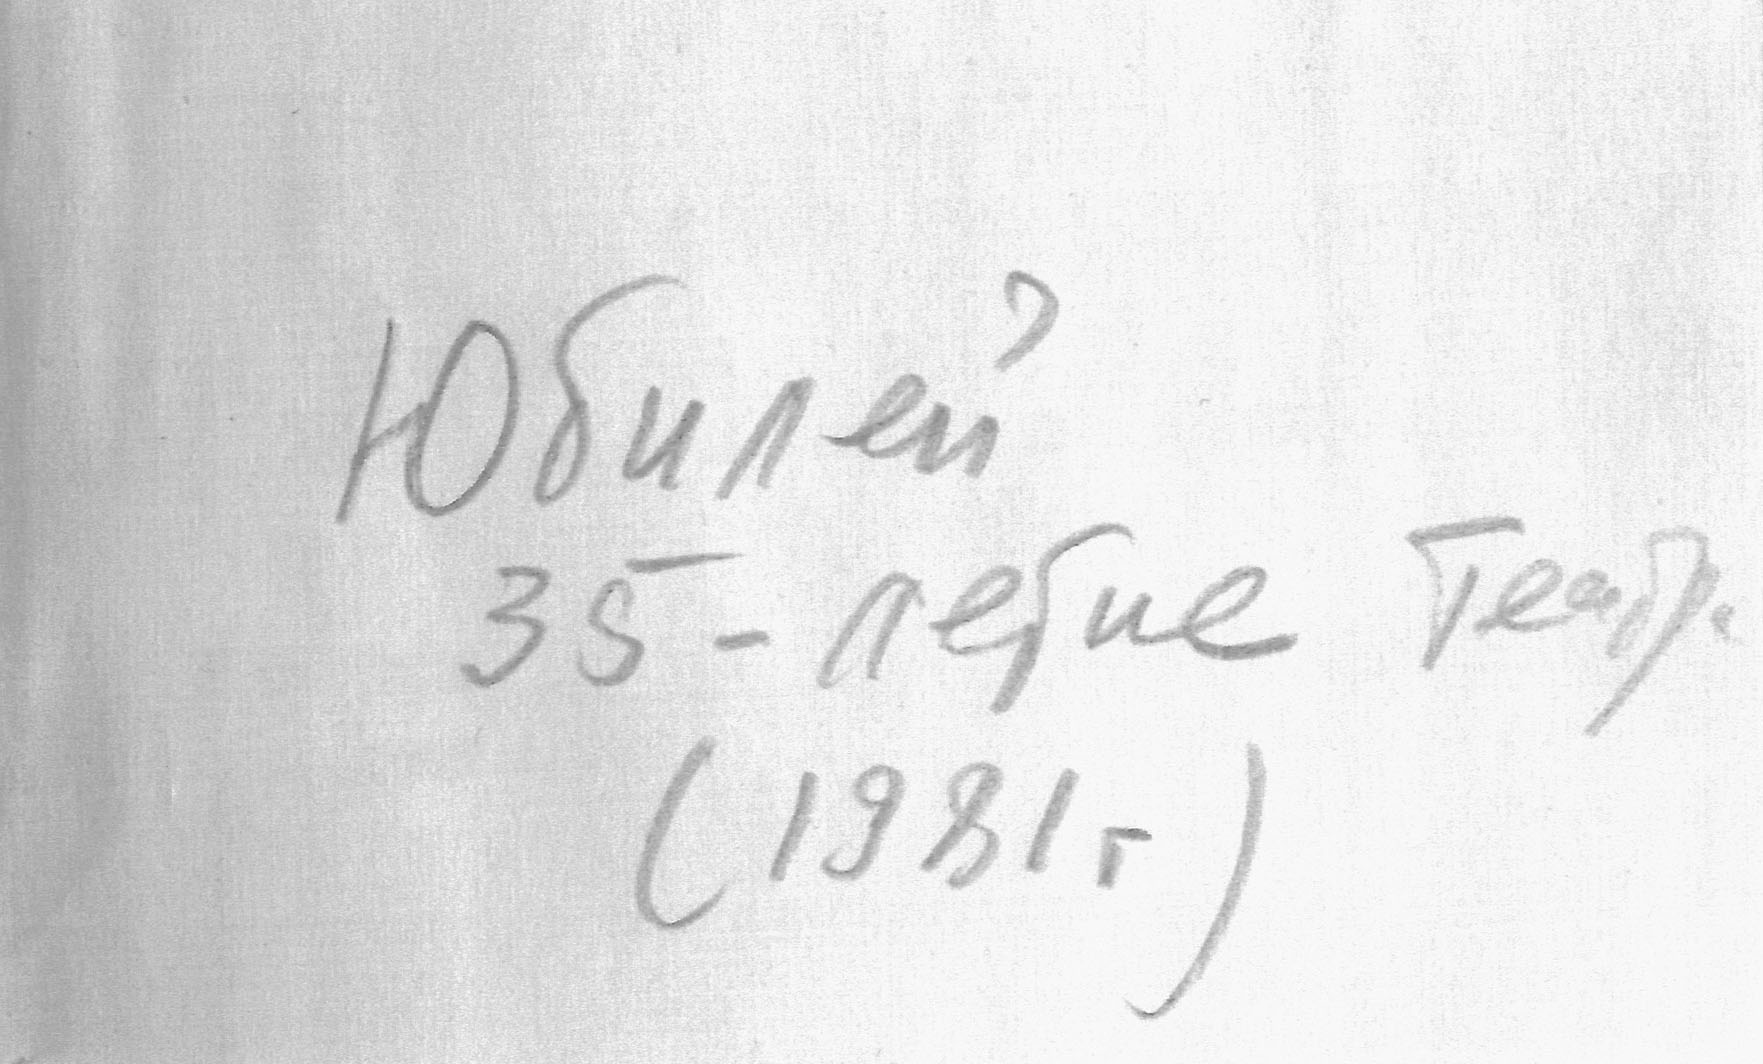 Юбилей
35-летие Театра
(1981г)